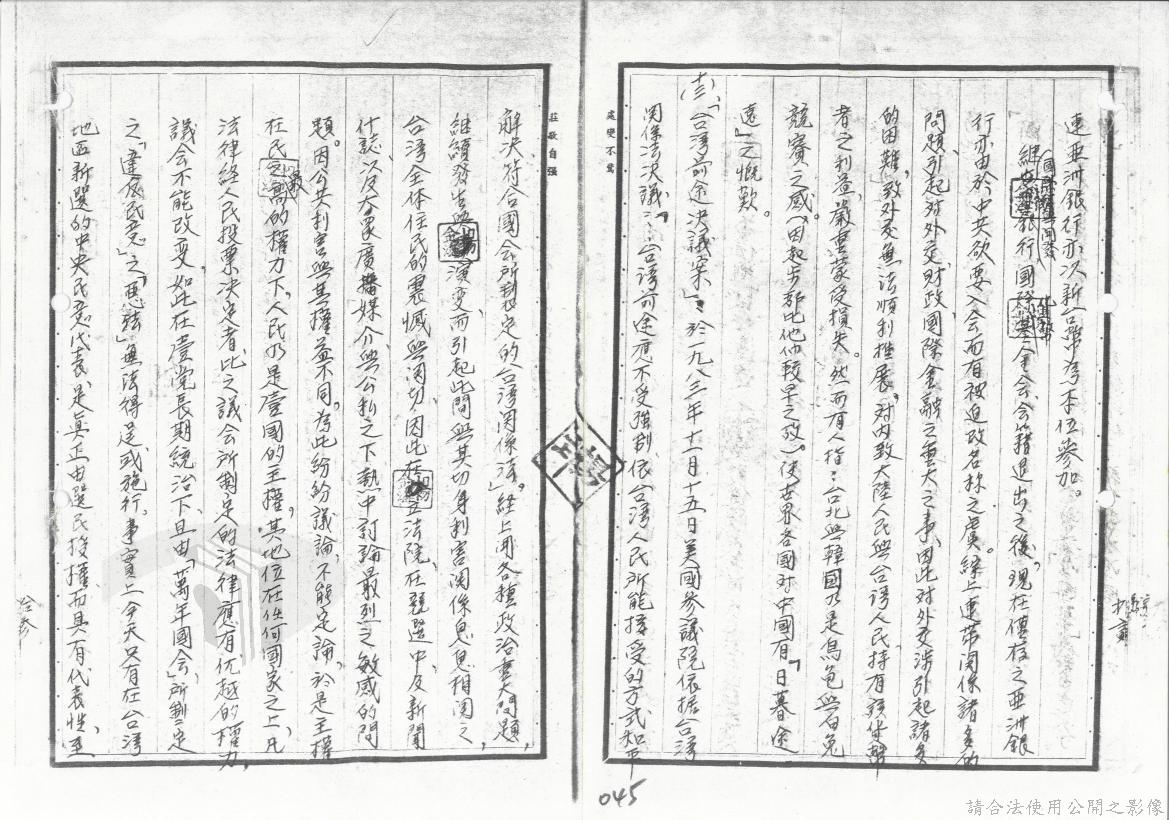 連亞洲銀行亦次新台幣為本位參加。
繼世界銀行國際基金会会籍退出之後，現在僅存之亞洲銀
行亦由於中共欲要入会而有被迫改名称之虞。綜上連帶関係諸多的
問題，引起对外交財政國際金融之重大之事，因此对外交涉引起諸多
的困難，致外交無法順利推展，对内致大陸人民與台湾人民持有該貨幣
者之利益，嚴重蒙受損失。然而有人指：台北與韓國乃是烏龟與白兔
競賽之感，（因起步都比他們較早之故）使世界各國对中國有「日暮途
遠」之慨歎。
(十三)、「台湾前途決議案」：於一九八三年十一月十五日美國參議院依据台湾
関係法決議：「：台湾前途應不受強制，依台湾人民所能接受的方式和平
解決，符合國会所製定的台湾関係法。」経上開各種政治重大問題，
継續發生與演变，而引起此間與其切身利害関係息息相関之
台湾全体住民的震憾與関切，因此在立法院、在競選中，及新聞
什誌、以及大眾廣播媒介與公私之下熱中討論最烈之敏感的問
題。因公共利害與其權益不同。為此紛紛議論，不能定論，於是主權
在民，最高的權力下，人民乃是壹國的主權，其地位在任何國家之上，凡
法律經人民投票決定者，比之議会所制定的法律應有优越的權力，
議会不能改变，如此在壹党長期統治下、且由「萬年國会」所制定
之「違反民意」之「惡法」無法得足或施行。事實上今天只有在台湾
地區新選的中央民意代表是真正由選民投權而具有代表性，至
莊敬自强
處變不驚
045
請合法使用公開之影像